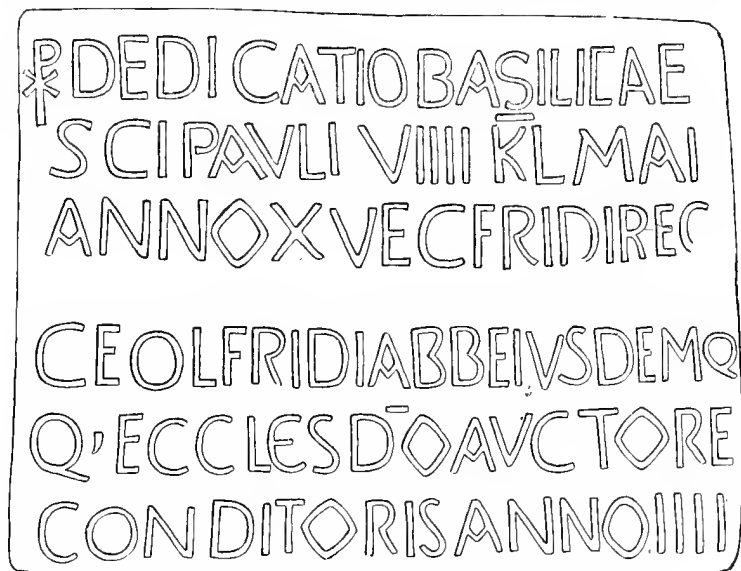 ⳩ DEDICATIOBASILICAE
SCI PAVLI VIIII K̅L MAI
ANNO X VECFRIDI REC
CEOLFRIDI ABB EIVSDEMQ
Q' ECCLES D̅O AVCTORE
CONDITORIS ANNO IIII